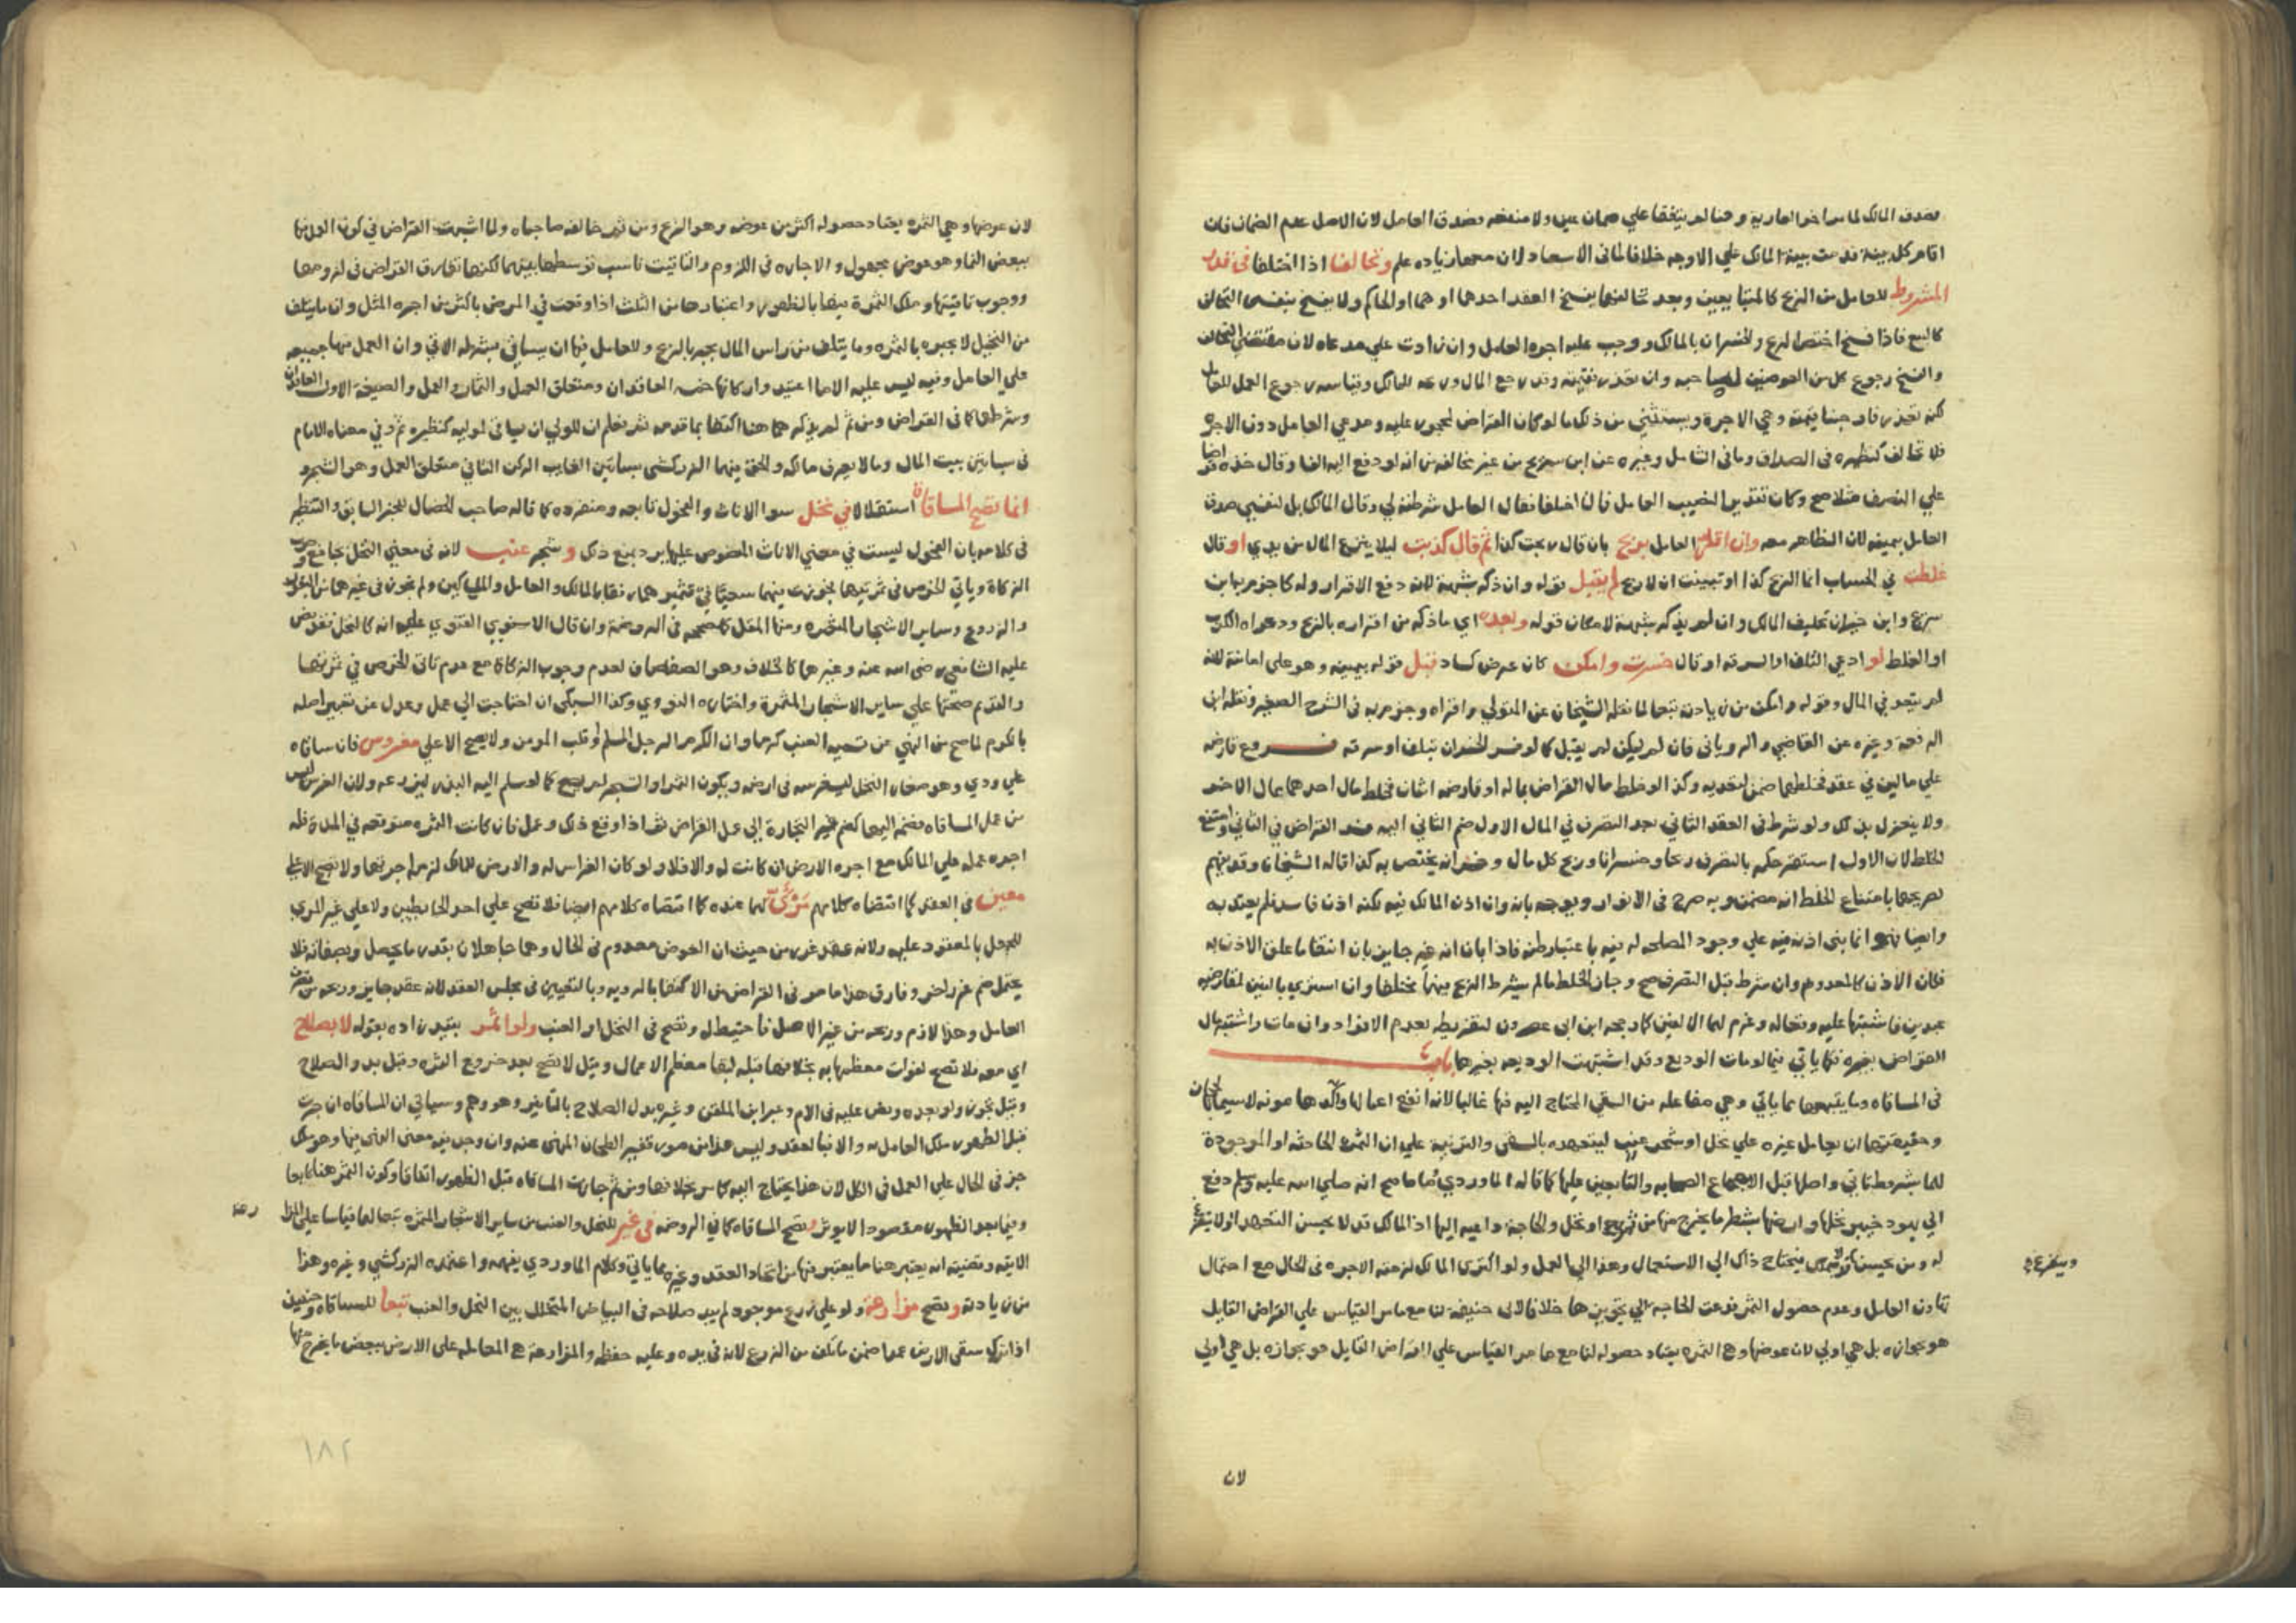 فصدق المالك لما مر اخر العارية وهنا لم يتفقا علي ضمان عين ولا منفعه فصدق العامل لان الاصل عدم الضمان فان
اقام كل بينة قدمت بينة المالك علي الاوجه خلافا لما في الاسعاد لان معها زياده علم وتحالفا اذا اختلفا في قدر
المشروط للعامل من الربح كالمتبايعين وبعد تحالفهما يفسخ العقد احدهما او هما او الحاكم ولا ينفسخ بنفس التحالف
كالبيع فاذا فسخ اختص الربح والخسران بالمالك ووجب عليه اجره العامل وان زادت علي مدعاه لان مقتضي التحالف
والفسخ رجوع كل من العوضين لصاحبه وان تعذر فقيمته وقد رجع المال وربحه للمالك وقياسه رجوع العمل للعامل
لكنه تعذر فاوجبنا قيمته وهي الاجرة ويستثني من ذلك ما لو كان القراض لمحجور عليه ومدعي العامل دون الاجره
فلا تحالف كنظيره في الصداق وما في الشامل وغيره عن ابن سريج من غير مخالفه من انه لو دفع اليه الفا وقال خذه قراضا
علي النصف مثلا صح وكان تقديرا لنصيب العامل فان اختلفا فقال العامل شرطته لي وقال المالك بل لنفسي صدق
العامل بيمينه لان الظاهر معه وان اقر العامل بربح بان قال ربحت كذا ثم قال كذبت ليلا ينزع المال من يدي او قال
غلطت في الحساب انما الربح كذا او تبينت ان لا ربح لم يقبل قوله وان ذكر شبهة لانه دفع الاقرار وله كما جزم به ابن
سريج وابن خيران تحليف المالك وان لم يذكر شبهة لامكان قوله وبعده اي ما ذكر من اقراره بالربح ودعواه الكذب
او الغلط لو ادعي التلف او السرقه او قال خسرت وامكن كان عرض كساد قبل قوله بيمينه وهو علي امانته لانه
لم يتعد في المال وقوله وامكن من زيادته تبعا لما نقله الشيخان عن المتولي واقراه وجزم به في الشرح الصغير ونقله ابن
الرفعه وغيره عن القاضي والروياني فان لم يمكن لم يقبل كما لو فسر الخسران بتلف او سرقه فــــروع قارضه
علي مالين في عقد فخلطهما ضمن لتعديه وكذا لو خلط مال القراض بماله او قارضه اثنان فخلط مال احدهما بمال الاخر
ولا ينعزل بذلك ولو شرط في العقد الثاني بعد التصرف في المال الاول ضم الثاني اليه فسد القراض في الثاني وامتنع
الخلط لان الاول استقر حكمه بالتصرف ربحا وخسرانا وربح كل مال وخسرانه يختص به كذا قاله الشيخان وقد يفهم
تصريحهما بامتناع الخلط انه مضمن وبه صرح في الانوار ويوجه بانه وان اذن المالك فيه لكنه اذن فاسد فلم يعتد به
وايضا فهو انما بني اذنه فيه علي وجود المصلحه له فيه باعتبار ظنه فاذا بان انه غير جايز بان انتفا ما علق الاذن به
فكان الاذن كالمعدوم وان شرط قبل التصرف صح وجاز الخلط ما لم يشرط الربح فيهما مختلفا وان اشتري بالفين لمقارضيه
عبدين فاشتبها عليه وقعا له وغرم لهما الالفين كما رجحه ابن ابي عصرون لتفريطه بعدم الافراد وان مات واشتبه مال
القراض بغيره فكما ياتي فيما لو مات الوديع وقد اشتبهت الوديعه بغيرها بابــــ
في المساقاه وما يتبعها مما ياتي وهي مفاعله من السقي المحتاج اليه فيها غالبا لانه انفع اعمالها واكدها مونه لا سيما بالحجاز
وحقيقتها ان يعامل غيره علي نخل او شجر عنب ليتعهده بالسقي والتربية علي ان الثمرة الحادثه او الموجودة
لهما بشروط تاتي واصلها قبل الاجماع الصحابه والتابعين عليها كما قاله الماوردي ما صح انه صلي الله عليه وسلم دفع
الي يهود خيبر نخلها وارضها بشطر ما يخرج منها من ثمر او زرع ونخل والحاجة داعيه اليها اذ المالك قد لا يحسن التعهد او لا يتفرغ
له ومن يحسن ويتفرغ قد لا يملك فيحتاج ذاك الي الاستعمال وهذا الي العمل ولو اكتري المالك لزمته الاجره في الحال مع احتمال
تهاون العامل وعدم حصول الثمر فدعت الحاجه الي تجويزها خلافا لابي حنيفة لنا مع ما مر القياس علي القراض القايل
هو بجوازه بل هي اولي لان عوضها وهو الثمره يعتاد حصوله لنا مع ما مر القياس علي القراض القايل هو بجوازه بل هي اولي
ويتفرغ
لان
لان عوضها وهي الثمره يعتاد حصوله اكثر من عوضه وهو الربح ومن ثم خالفه صاحباه ولما اشبهت القراض في كون العمل فيها
ببعض النما وهو عوض مجهول والاجاره في اللزوم والتاقيت ناسب توسطها بينهما لكنها تفارق القراض في لزومها
ووجوب تاقيتها وملك الثمرة فيها بالظهور واعتبارها من الثلث اذا وقعت في المرض باكثر من اجره المثل وان ما يتلف
من النخيل لا يجبره بالثمره وما يتلف من راس المال يجبر بالربح وللعامل فيها ان يساقي بشرطه الاتي وان العمل فيها جميعه
علي العامل وفيه ليس عليه الا ما اعتيد واركانها خمسه العاقدان ومتعلق العمل والثمار والعمل والصيغة الاول العاقدان
وشرطهما كما في القراض ومن ثم لم يذكرهما هنا اكتفا بما قدمه ثم نعلم ان للولي ان يساقي لموليه كنظيره ثم وفي معناه الامام
في بساتين بيت المال وما لا يعرف مالكه والحق بهما الزركشي بساتين الغايب الركن الثاني متعلق العمل وهو الشجر و
انما تصح المساقاة استقلالا في نخل سوا الاناث والفحول تابعه ومنفرده كما قاله صاحب الخصال للخبر السابق والتنظير
في كلامه بان الفحول ليست في معني الاناث المنصوص عليها يرد بمنع ذلك وشجر عنب لانه في معني النخل بجامع وجوب
الزكاة وياتي الخرص في ثمرتيهما فجوزت فيهما سعيا في تثميرهما رفقا بالمالك والعامل والمساكين ولم تجوز في غيرهما من البقول
والزروع وساير الاشجار المثمره ومنها المقل كما صححه في الروضة وان قال الاسنوي الفتوي علي انه كالنخل فقد نص
عليه الشافعي رضي الله عنه وغيرهما كالخلاف وهو الصفصاف لعدم وجوب الزكاة مع عدم تاتي الخرص في ثمرتها
والقديم صحتها علي ساير الاشجار المثمرة واختاره النووي وكذا السبكي ان احتاجت الي عمل وعدل عن تعبير اصله
بالكرم لما صح من النهي عن تسميه العنب كرما وان الكرم الرجل المسلم او قلب المومن ولا يصح الا علي مغروس فان ساقاه
علي ودي وهو صغار النخل ليغرسه في ارضه ويكون الثمر او الشجر لهما لم يصح كما لو سلم اليه البذر ليزرعه ولان الغرس ليس
من عمل المساقاه فضمه اليها كضم غير التجارة الي عمل القراض نقد اذا وقع ذلك وعمل فان كانت الثمره متوقعه في المدة فله
اجره عمله علي المالك مع اجره الارض ان كانت له والا فلا ولو كان الغراس له والارض للمالك لزمه اجرتها ولا تصح الا علي
معين في العقد كما اقتضاه كلامهم مرئي لهما عنده كما اقتضاه كلامهم ايضا فلا تصح علي احد الحايطين ولا علي غير المري
للجهل بالمعقود عليه ولانه عقد غرر من حيث ان العوض معدوم في الحال وهما جاهلان بقدر ما يحصل وبصفاته فلا
يحتمل ضم غرر اخر وفارق هذا ما مر في القراض من الاكتفا بالرويه وبالتعيين في مجلس العقد لانه عقد جايز وربحه من تصرف
العامل وهذا لازم وربحه من غير الاصل فاحتيط له وتصح في النخل او العنب ولو اثمر بقيد زاده بقوله لا بصلاح
اي معه فلا تصح لفوات معظمها به بخلافها قبله لبقا معظم الاعمال وقيل لا تصح بعد خروج الثمره وقبل بدو الصلاح
وقيل تجوز ولو بعده ونص عليه في الام وعبر ابن الملقن وغيره بدل الصلاح بالتابير وهو وهم وسياتي ان المساقاه ان جرت
قبل الظهور ملك العامل به والا فبالعقد وليس هذا من صور قفيز الطحان المنهي عنه وان وجد فيه معني النهي فيها وهو تملك
جز في الحال علي العمل في الكل لان هذا يحتاج اليه كما مر بخلافها ومن ثم جازت المساقاه قبل الظهور اتفاقا وكون الثمر هنا تابعا
وفيما بعد الظهور مقصودا لا يوثر وتصح المساقاه كما في الروضه في غير للنخل والعنب من ساير الاشجار المثمره تبعا لها قياسا علي المزا
رعه
الاتيه وقضيته انه يعتبر هنا ما يعتبر فيها من اتحاد العقد وغيره مما ياتي وكلام الماوردي يفهمه واعتمده الزركشي وغيره وهذا
من زيادته وتصح مزارعة ولو علي زرع موجود لم يبد صلاحه في البياض المتخلل بين النخل والعنب تبعا للمساقاه وحينئذ
اذا ترك سقي الارض عمدا ضمن ما تلف من الزرع لانه في يده وعليه حفظه والمزارعة هي المعامله علي الارض ببعض ما يخرج منها
١٨٢